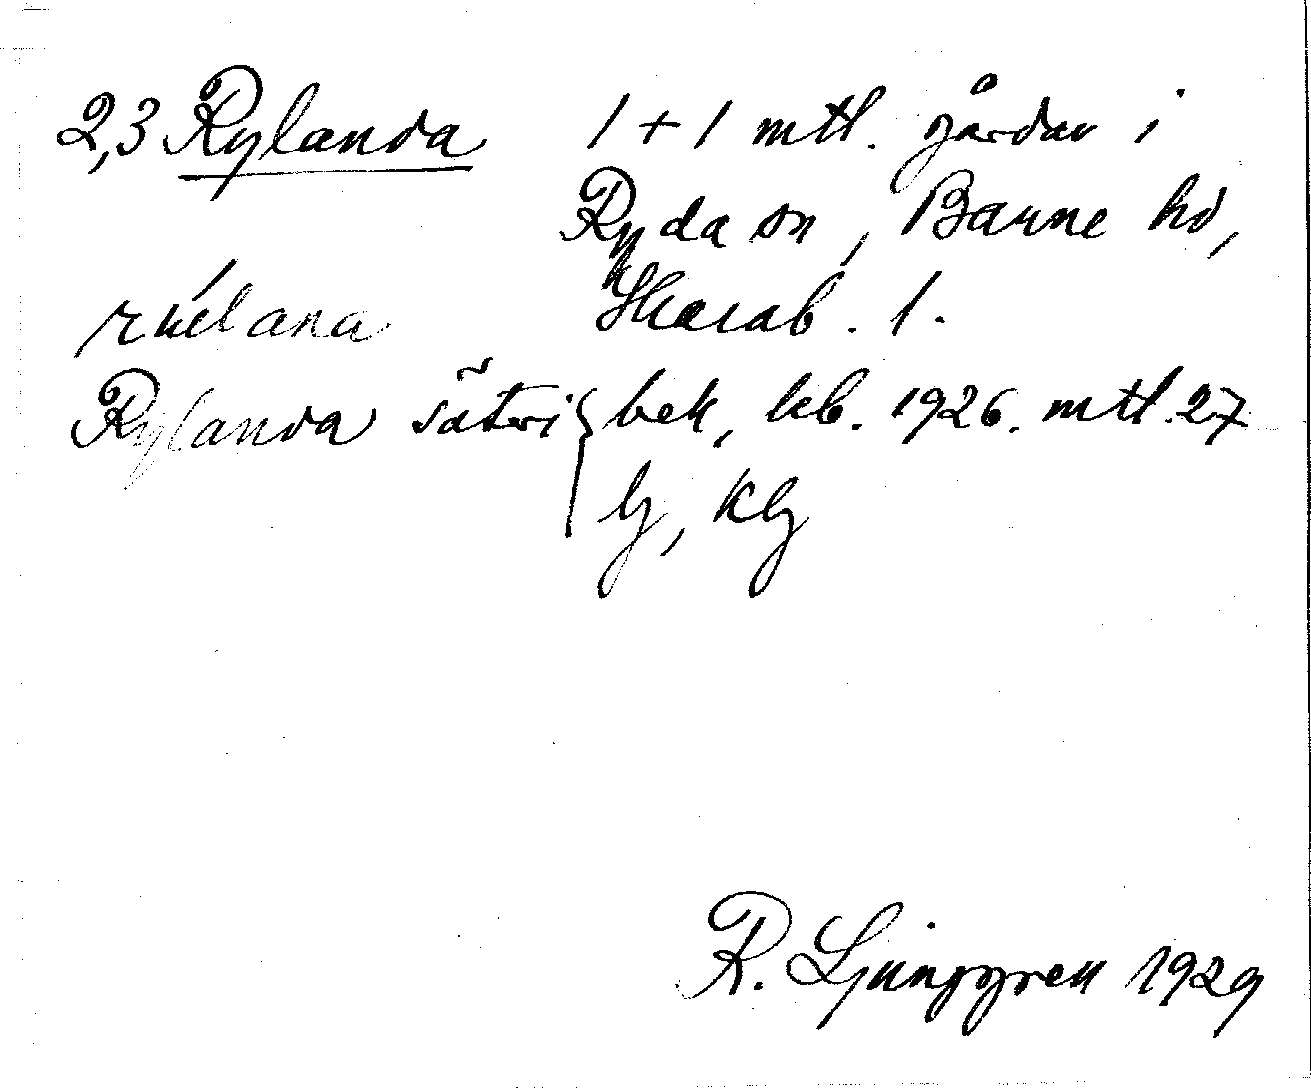 2,3 Rylanda 1 + 1 mtl. gårdar i
Ryda sn, Barne hd,
Skarab. l.
Rylanda säteri { bek, kb. 1926. mtl. 27
lj, klj
R. Ljunggren 1929